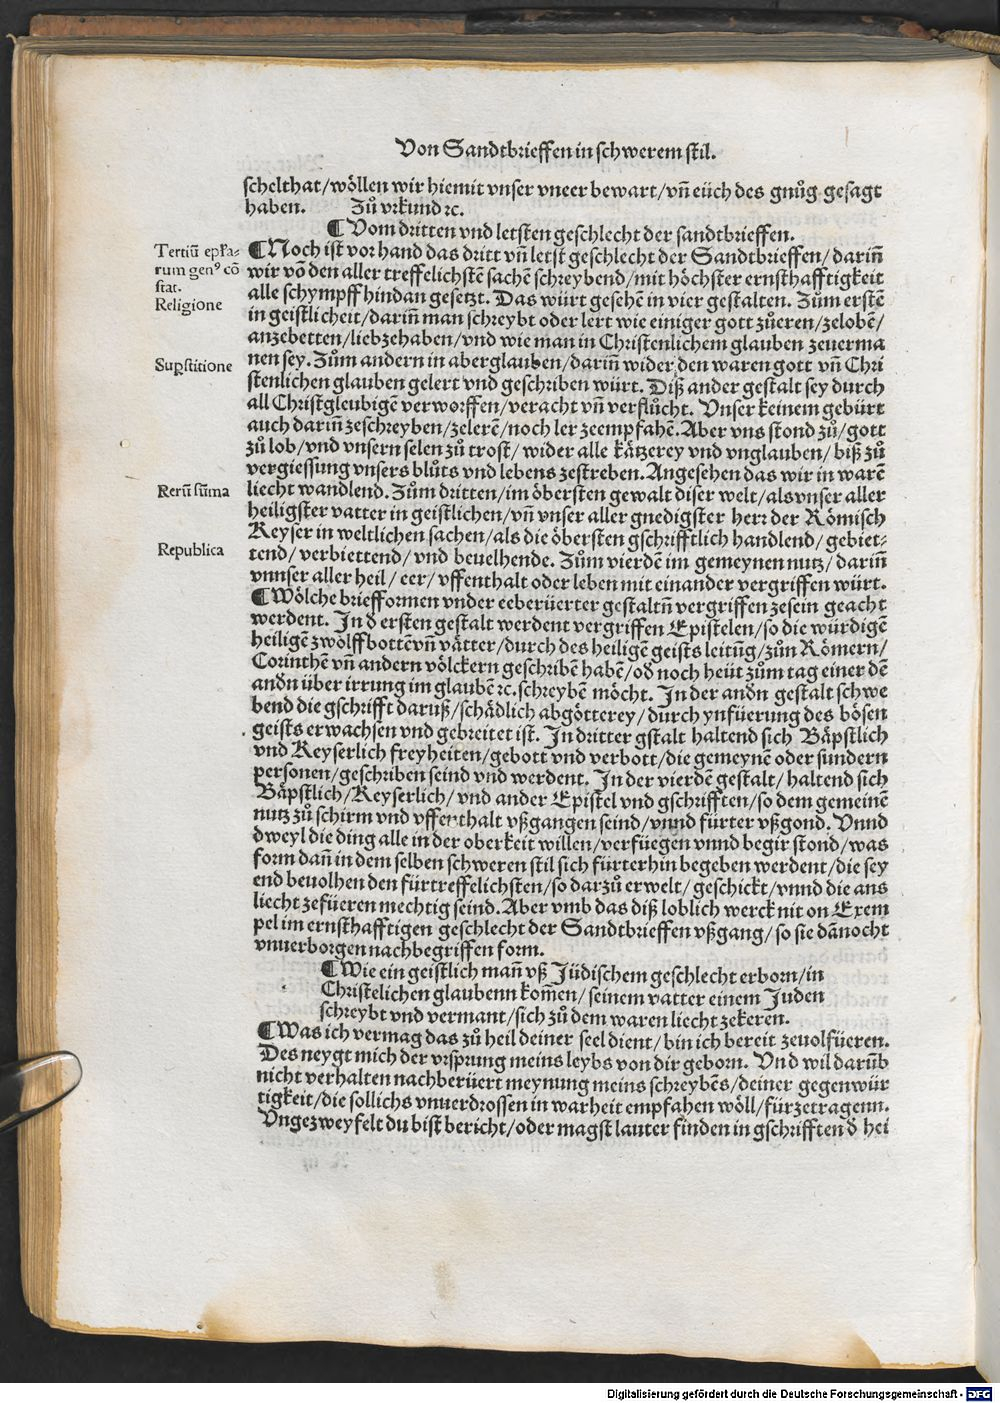 Von Sandtbrieffen in schwerem stil.
schelthat/wöllen wir hiemit vnser vneer bewart/vñ eüch des gnůg gesagt
haben. Zů vrkund ꝛc.
¶ Vom dritten vnd letsten geschlecht der sandtbrieffen.
Tertiũ epła-
rum genꝰ cõ
stat.
Religione
Suꝑstitione
Rerũ sũma
Republica
¶ Noch ist vor hand das dritt vñ letst geschlecht der Sandtbrieffen/dariñ
wir võ den aller treffelichstẽ sachẽ schreybend/mit höchster ernsthafftigkeit
alle schympff hindan gesetzt. Das würt gesehẽ in vier gestalten. Zům erstẽ
in geistlicheit/dariñ man schreybt oder lert wie einiger gott zůeren/zelobẽ/
anzebetten/liebzehaben/vnd wie man in Christenlichem glauben zeuerma
nen sey. Zům andern in aberglauben/dariñ wider den waren gott vñ Chri
stenlichen glauben gelert vnd geschriben würt. Diß ander gestalt sey durch
all Christgleubigẽ verworffen/veracht vñ verflůcht. Vnser keinem gebürt
auch dariñ zeschreyben/zelerẽ/noch ler zeempfahẽ. Aber vns stond zů/gott
zů lob/vnd vnsern selen zů trost/wider alle kätzerey vnd vnglauben/biß zů
vergiessung vnsers blůts vnd lebens zestreben. Angesehen das wir in warẽ
liecht wandlend. Zům dritten/im öbersten gewalt diser welt/als vnser aller
heiligster vatter in geistlichen/vñ vnser aller gnedigster herꝛ der Römisch
Keyser in weltlichen sachen/als die öbersten gschrifftlich handlend/gebiet-
tend/verbiettend/vnd beuelhende. Zům vierdẽ im gemeynen nutz/dariñ
vnnser aller heil/eer/vffenthalt oder leben mit einander vergriffen würt.
¶ Wölche briefformen vnder eeberüerter gestaltñ vergriffen zesein geacht
werdent. In đ ersten gestalt werdent vergriffen Epistelen/so die würdigẽ
heiligẽ zwölffbottẽ vñ vätter/durch des heiligẽ geists leitũg/zůn Römern/
Corinthẽ vñ andern völckern geschribẽ habẽ/ođ noch heüt zům tag einer dẽ
anđn über irrung im glaubẽ ꝛc. schreybẽ möcht. In der anđn gestalt schwe
bend die gschrifft daruß/schädlich abgötterey/durch ynfüerung des bösen
geists erwachsen vnd gebreitet ist. In dritter gstalt haltend sich Bäpstlich
vnd Keyserlich freyheiten/gebott vnd verbott/die gemeynẽ oder sundern
personen/geschriben seind vnd werdent. In der vierdẽ gestalt/haltend sich
Bäpstlich/Keyserlich/vnd ander Epistel vnd gschrifften/so dem gemeinẽ
nutz zů schirm vnd vffenthalt vßgangen seind/vnnd fürter vßgond. Vnnd
dweyl die ding alle in der oberkeit willen/verfüegen vnnd begir stond/was
form dañ in dem selben schweren stil sich fürterhin begeben werdent/die sey
end beuolhen den fürtreffelichsten/so darzů erwelt/geschickt/vnnd die ans
liecht zefüeren mechtig seind. Aber vmb das diß loblich werck nit on Exem
pel im ernsthafftigen geschlecht der Sandtbrieffen vßgang/so sie dãnocht
vnuerborgen nachbegriffen form.
¶ Wie ein geistlich mañ vß Jüdischem geschlecht erborn/in
Christelichen glaubenn kom̃en/seinem vatter einem Juden
schreybt vnd vermant/sich zů dem waren liecht zekeren.
¶ Was ich vermag das zů heil deiner seel dient/bin ich bereit zeuolfüeren.
Des neygt mich der vrsprung meins leybs von dir geborn. Vnd wil darũb
nicht verhalten nachberüert meynung meins schreybẽs/deiner gegenwür
tigkeit/die sollichs vnuerdrossen in warheit empfahen wöll/fürzetragenn.
Vngezweyfelt du bist bericht/oder magst lauter finden in gschrifften đ hei
Digitalisierung gefördert durch die Deutsche Forschungsgemeinschaft - DFG